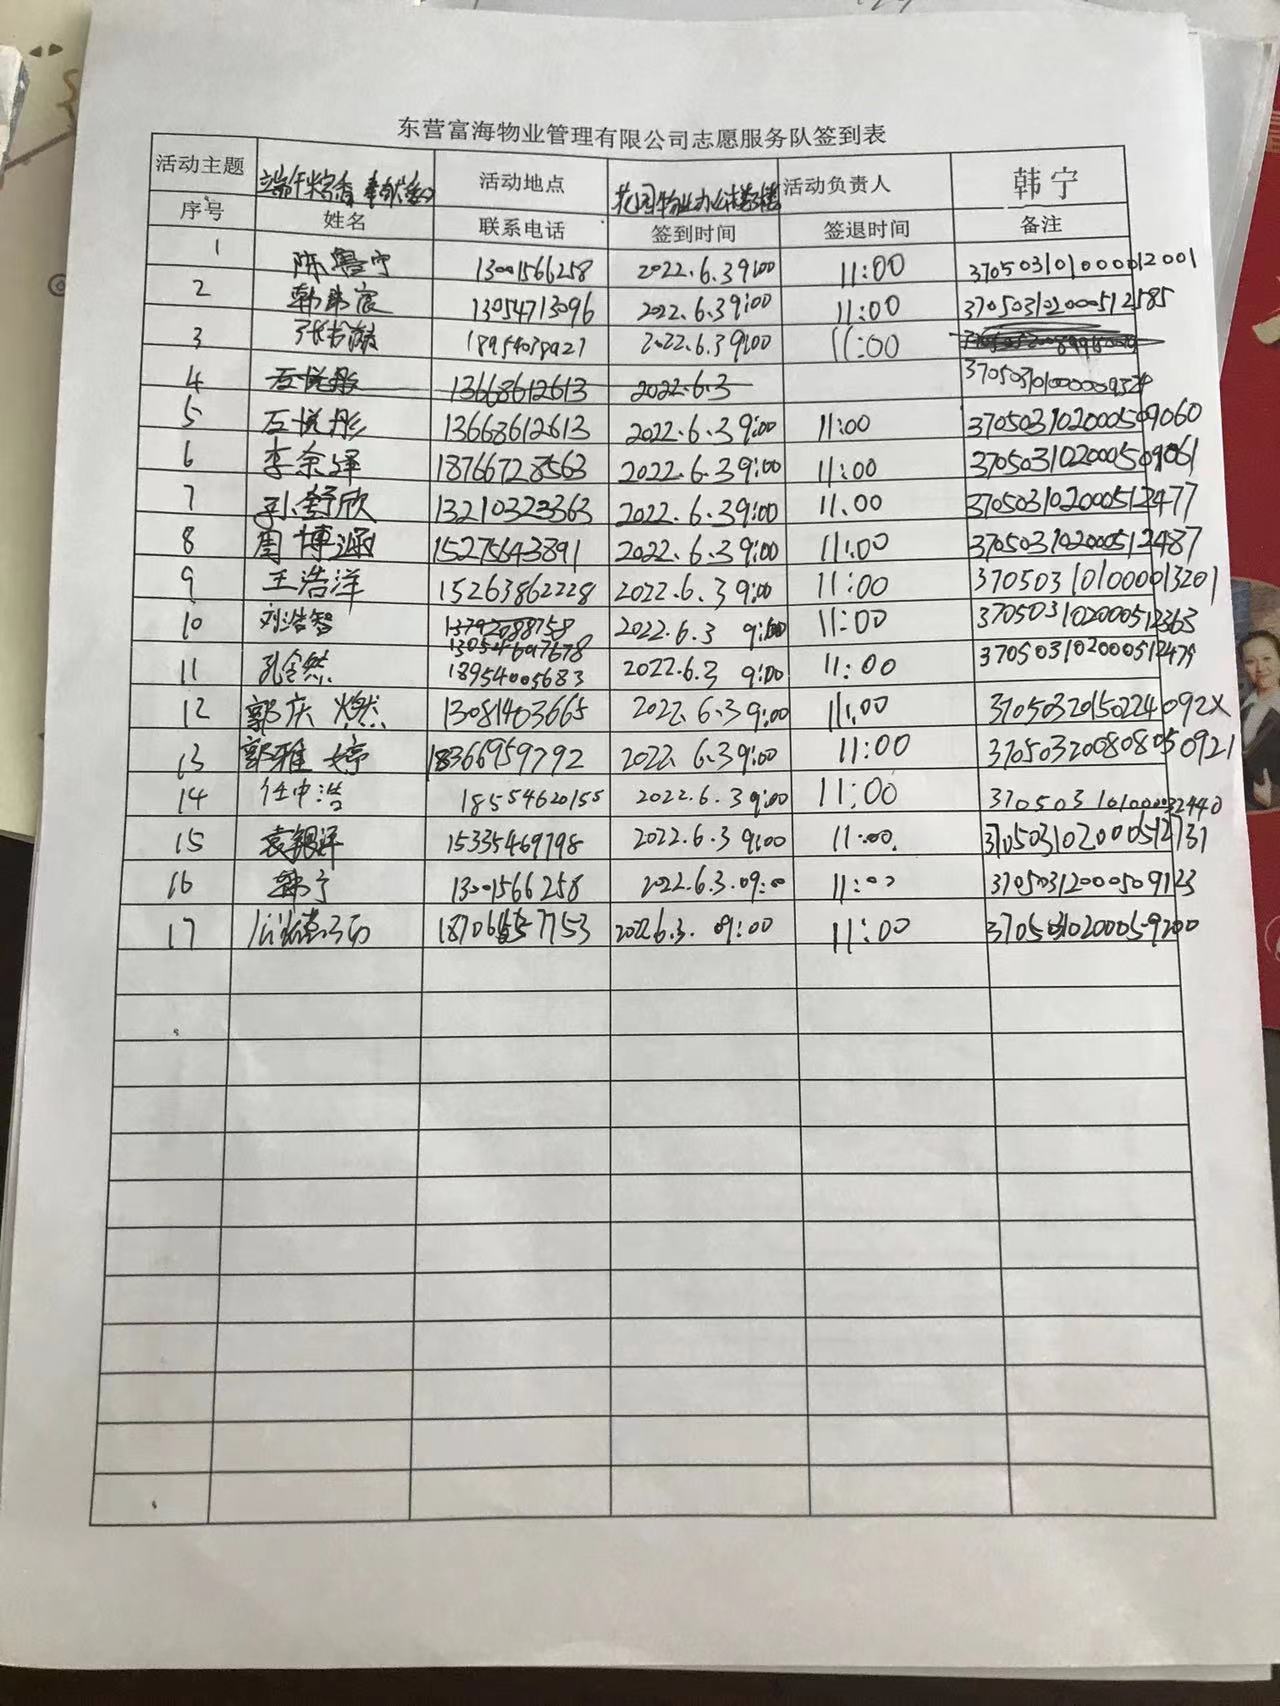 东营富海物业管理有限公司志愿服务队签到表
活动主题 端午粽香 奉献爱心 活动地点 花园物业办公楼 活动负责人 韩宁
序号 姓名 联系电话 签到时间 签退时间 备注
1 陈鲁宁 13001566258 2022.6.3 9:00 11:00 370503101000012001
2 韩玮宸 13054713096 2022.6.3 9:00 11:00 370503102000512585
3 18954038921 2022.6.3 9:00 11:00
4 左悦彤 13668612613 2022.6.3 3705031010000009524
5 左悦彤 13668612613 2022.6.3 9:00 11:00 370503102000509060
6 李余泽 18766728563 2022.6.3 9:00 11:00 370503102000509061
7 孙舒欣 13210323363 2022.6.3 9:00 11.00 370503102000512477
8 周博涵 15275643891 2022.6.3 9:00 11:00 370503102000512487
9 王浩洋 15263862228 2022.6.3 9:00 11:00 3705031010000013201
10 刘浩智 13792088758 2022.6.3 9:00 11:00 370503102000512363
13054607678
11 孔令然 18954005683 2022.6.3 9:00 11:00 370503102000512475
12 郭庆燃 13081403665 2022.6.3 9:00 11:00 37050320150224092X
13 郭雅婷 18366959792 2022.6.3 9:00 11:00 370503200808050921
14 任中浩 18554620155 2022.6.3 9:00 11:00 3705031010000032440
15 袁锟泽 15335469798 2022.6.3 9:00 11:00. 370503102000512731
16 韩宁 13001566258 2022.6.3.09:00 11:00 37050312000509123
17 2022.6.3. 09:00 11:00